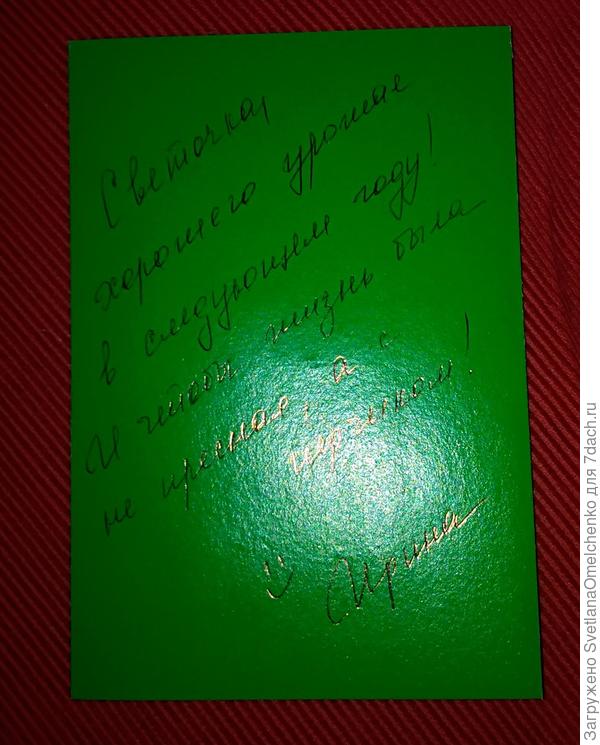 Светочка,
хорошего урожая
в следующем году!
И чтобы жизнь была
не пресная, а с
перчиком!
Ирина
Загружено SvetlanaOmelchenko для 7dach.ru